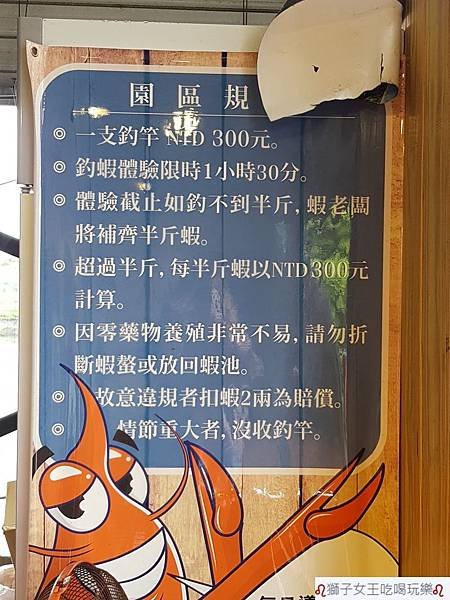 園區規
◎ 一支釣竿 NTD 300元。
◎ 釣蝦體驗限時1小時30分。
◎ 體驗截止如釣不到半斤,蝦老闆
將補齊半斤蝦。
◎ 超過半斤,每半斤蝦以NTD300元
計算。
◎ 因零藥物養殖非常不易,請勿折
斷蝦螯或放回蝦池。
◎ 故意違規者扣蝦2兩為賠償。
◎ 情節重大者,沒收釣竿。
獅子女王吃喝玩樂